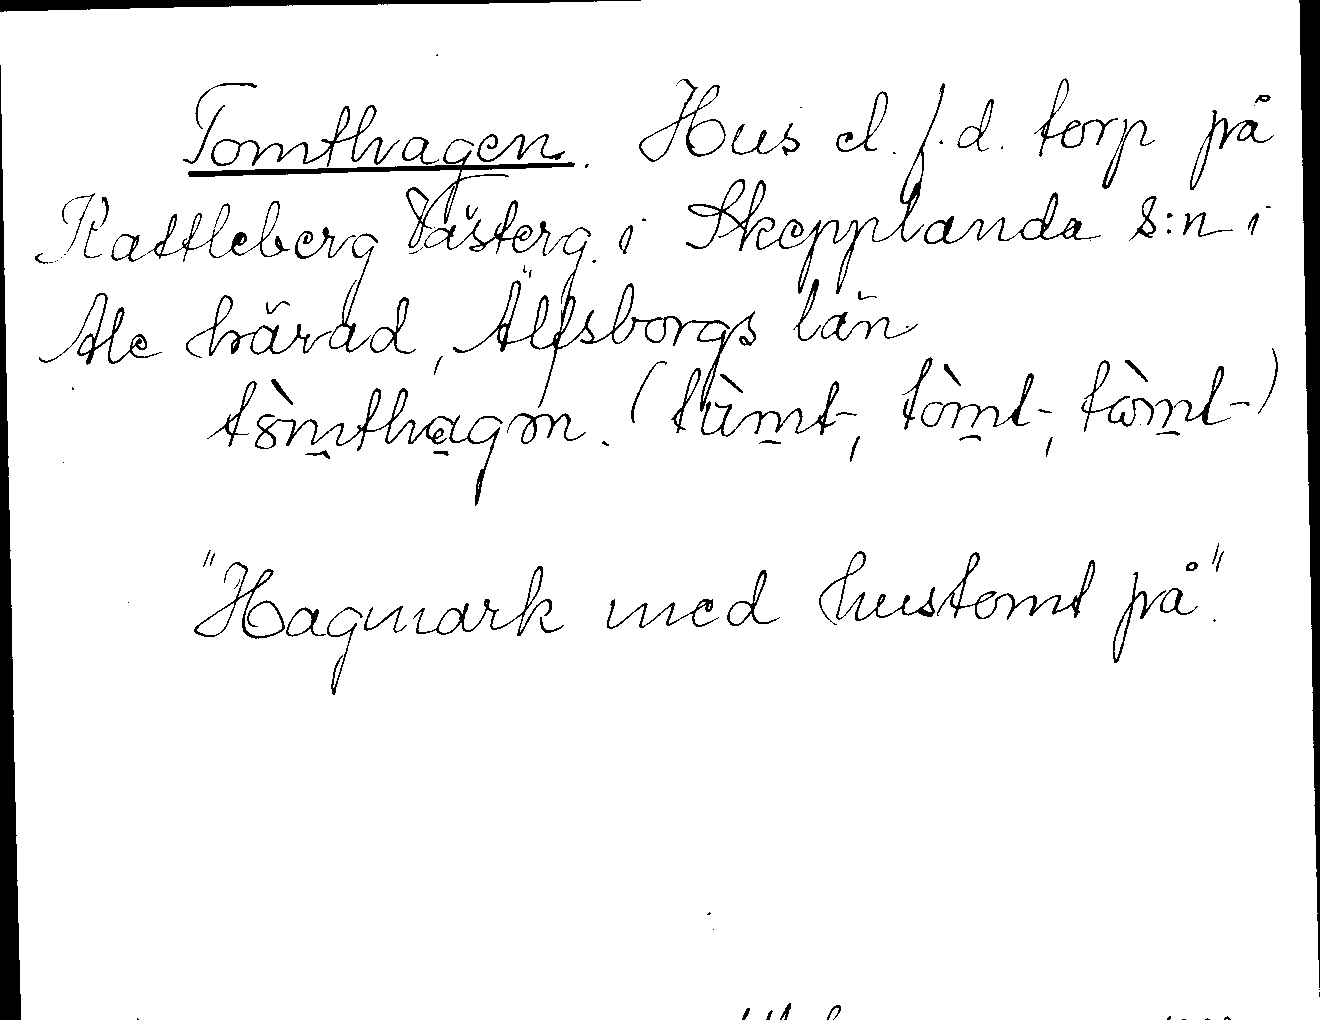 Tomthagen. Hus el. f.d. torp på
Kattleberg Västerg. i Skepplanda s:n i
Ale härad, Älfsborgs län
"Hagmark med hustomt på".